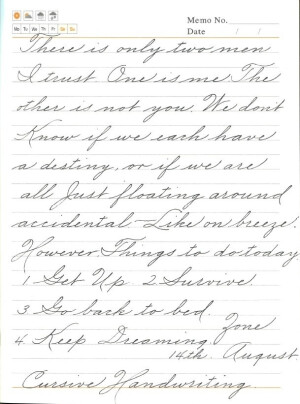 Memo No.
Mo Tu We Th Fr Sa Su Date / /
There is only two men
I trust One is me The
other is not you. We don't
Know if we each have
a destiny, or if we are
all Just floating around
accidental-Like on breeze.
However. Things to do today
1 Get Up. 2 Survive.
3 Go back to bed.
4. Keep Dreaming. Zone
14th. August.
Cursive Handwriting.